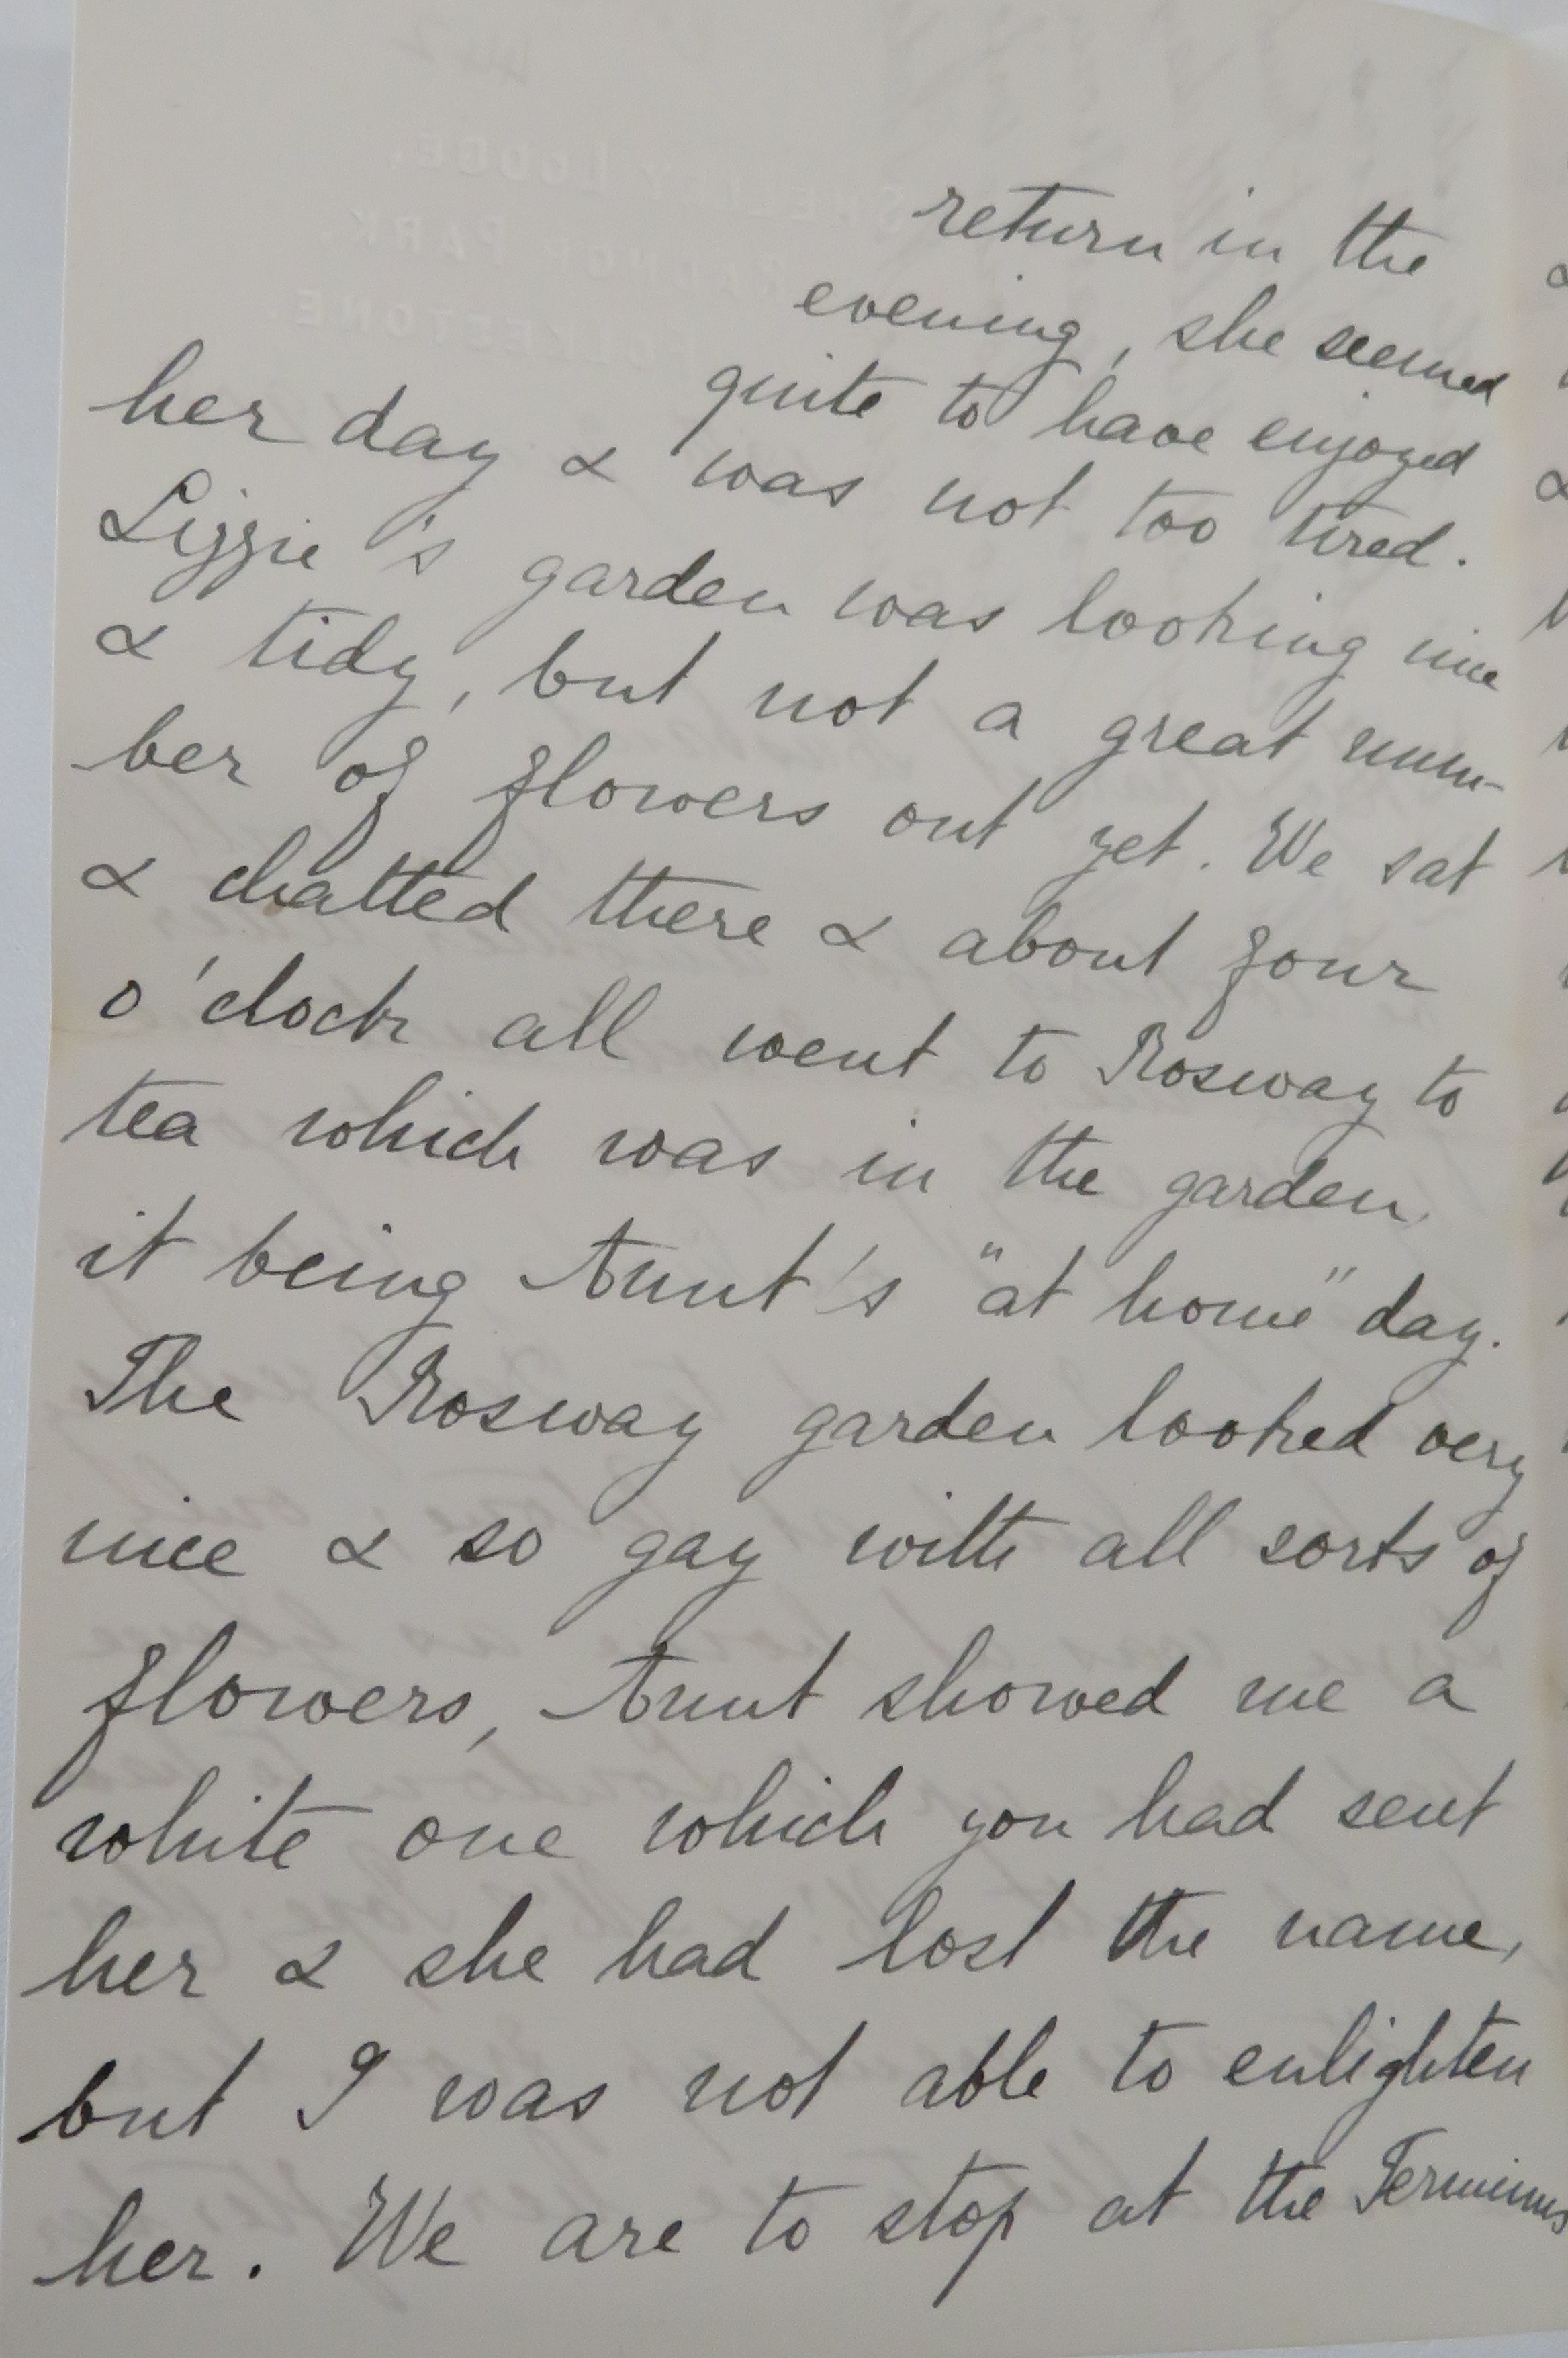 return in the
evening, she seemed
quite to have enjoyed
her day & was not too tired.
Lizzie's garden was looking nice
& tidy, but not a great num-
ber of flowers out yet. We sat
& chatted there & about four
o'clock all went to Rosway to
tea which was in the garden,
it being Aunt's "at home" day.
The Rosway garden looked very
nice & so gay with all sorts of
flowers, Aunt showed me a
white one which you had sent
her & she had lost the name,
but I was not able to enlighten
her. We are to stop at the Terminus